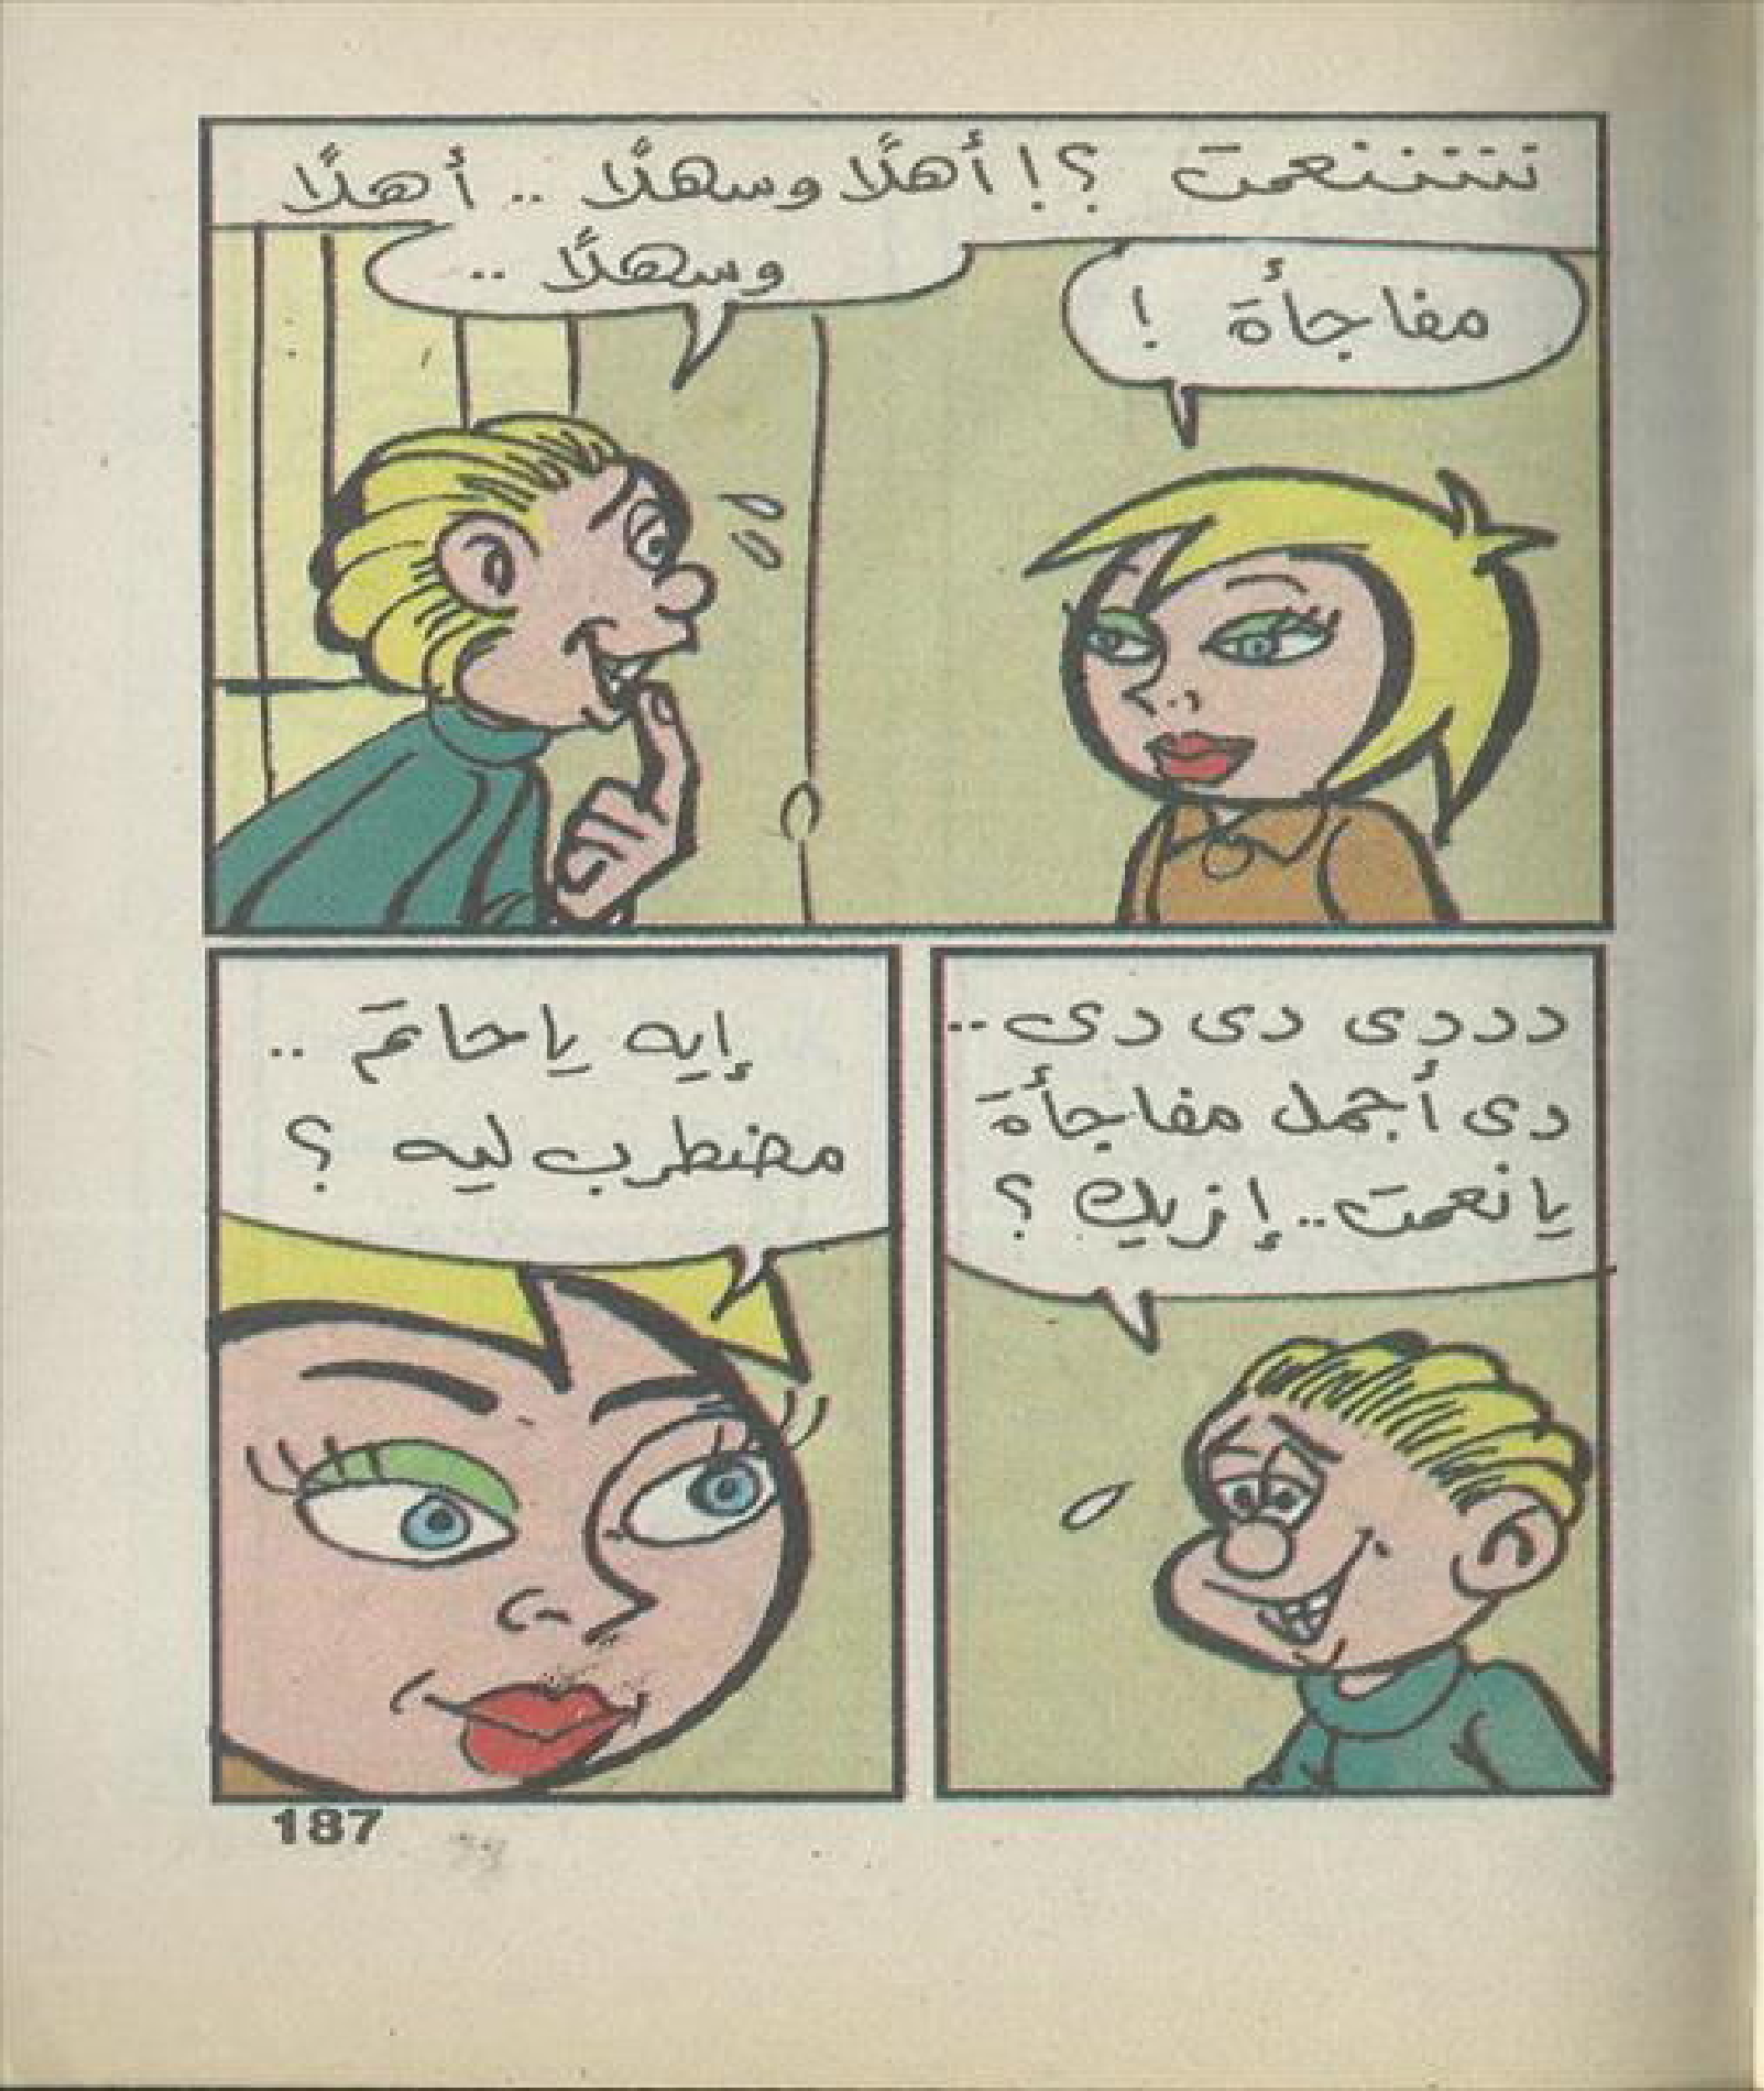 مفاجأة !
نننننعمت ؟! أهلًا وسهلًا .. أهلًا
وسهلًا ..
دددى دى دى ..
دى أجمل مفاجأة
يا نعمت .. إزيك ؟
إيه يا حاتم ..
مضطرب ليه ؟
187